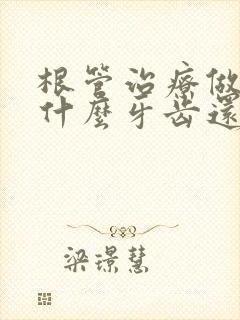 根管治療做
什麼牙齒還
梁璟慧